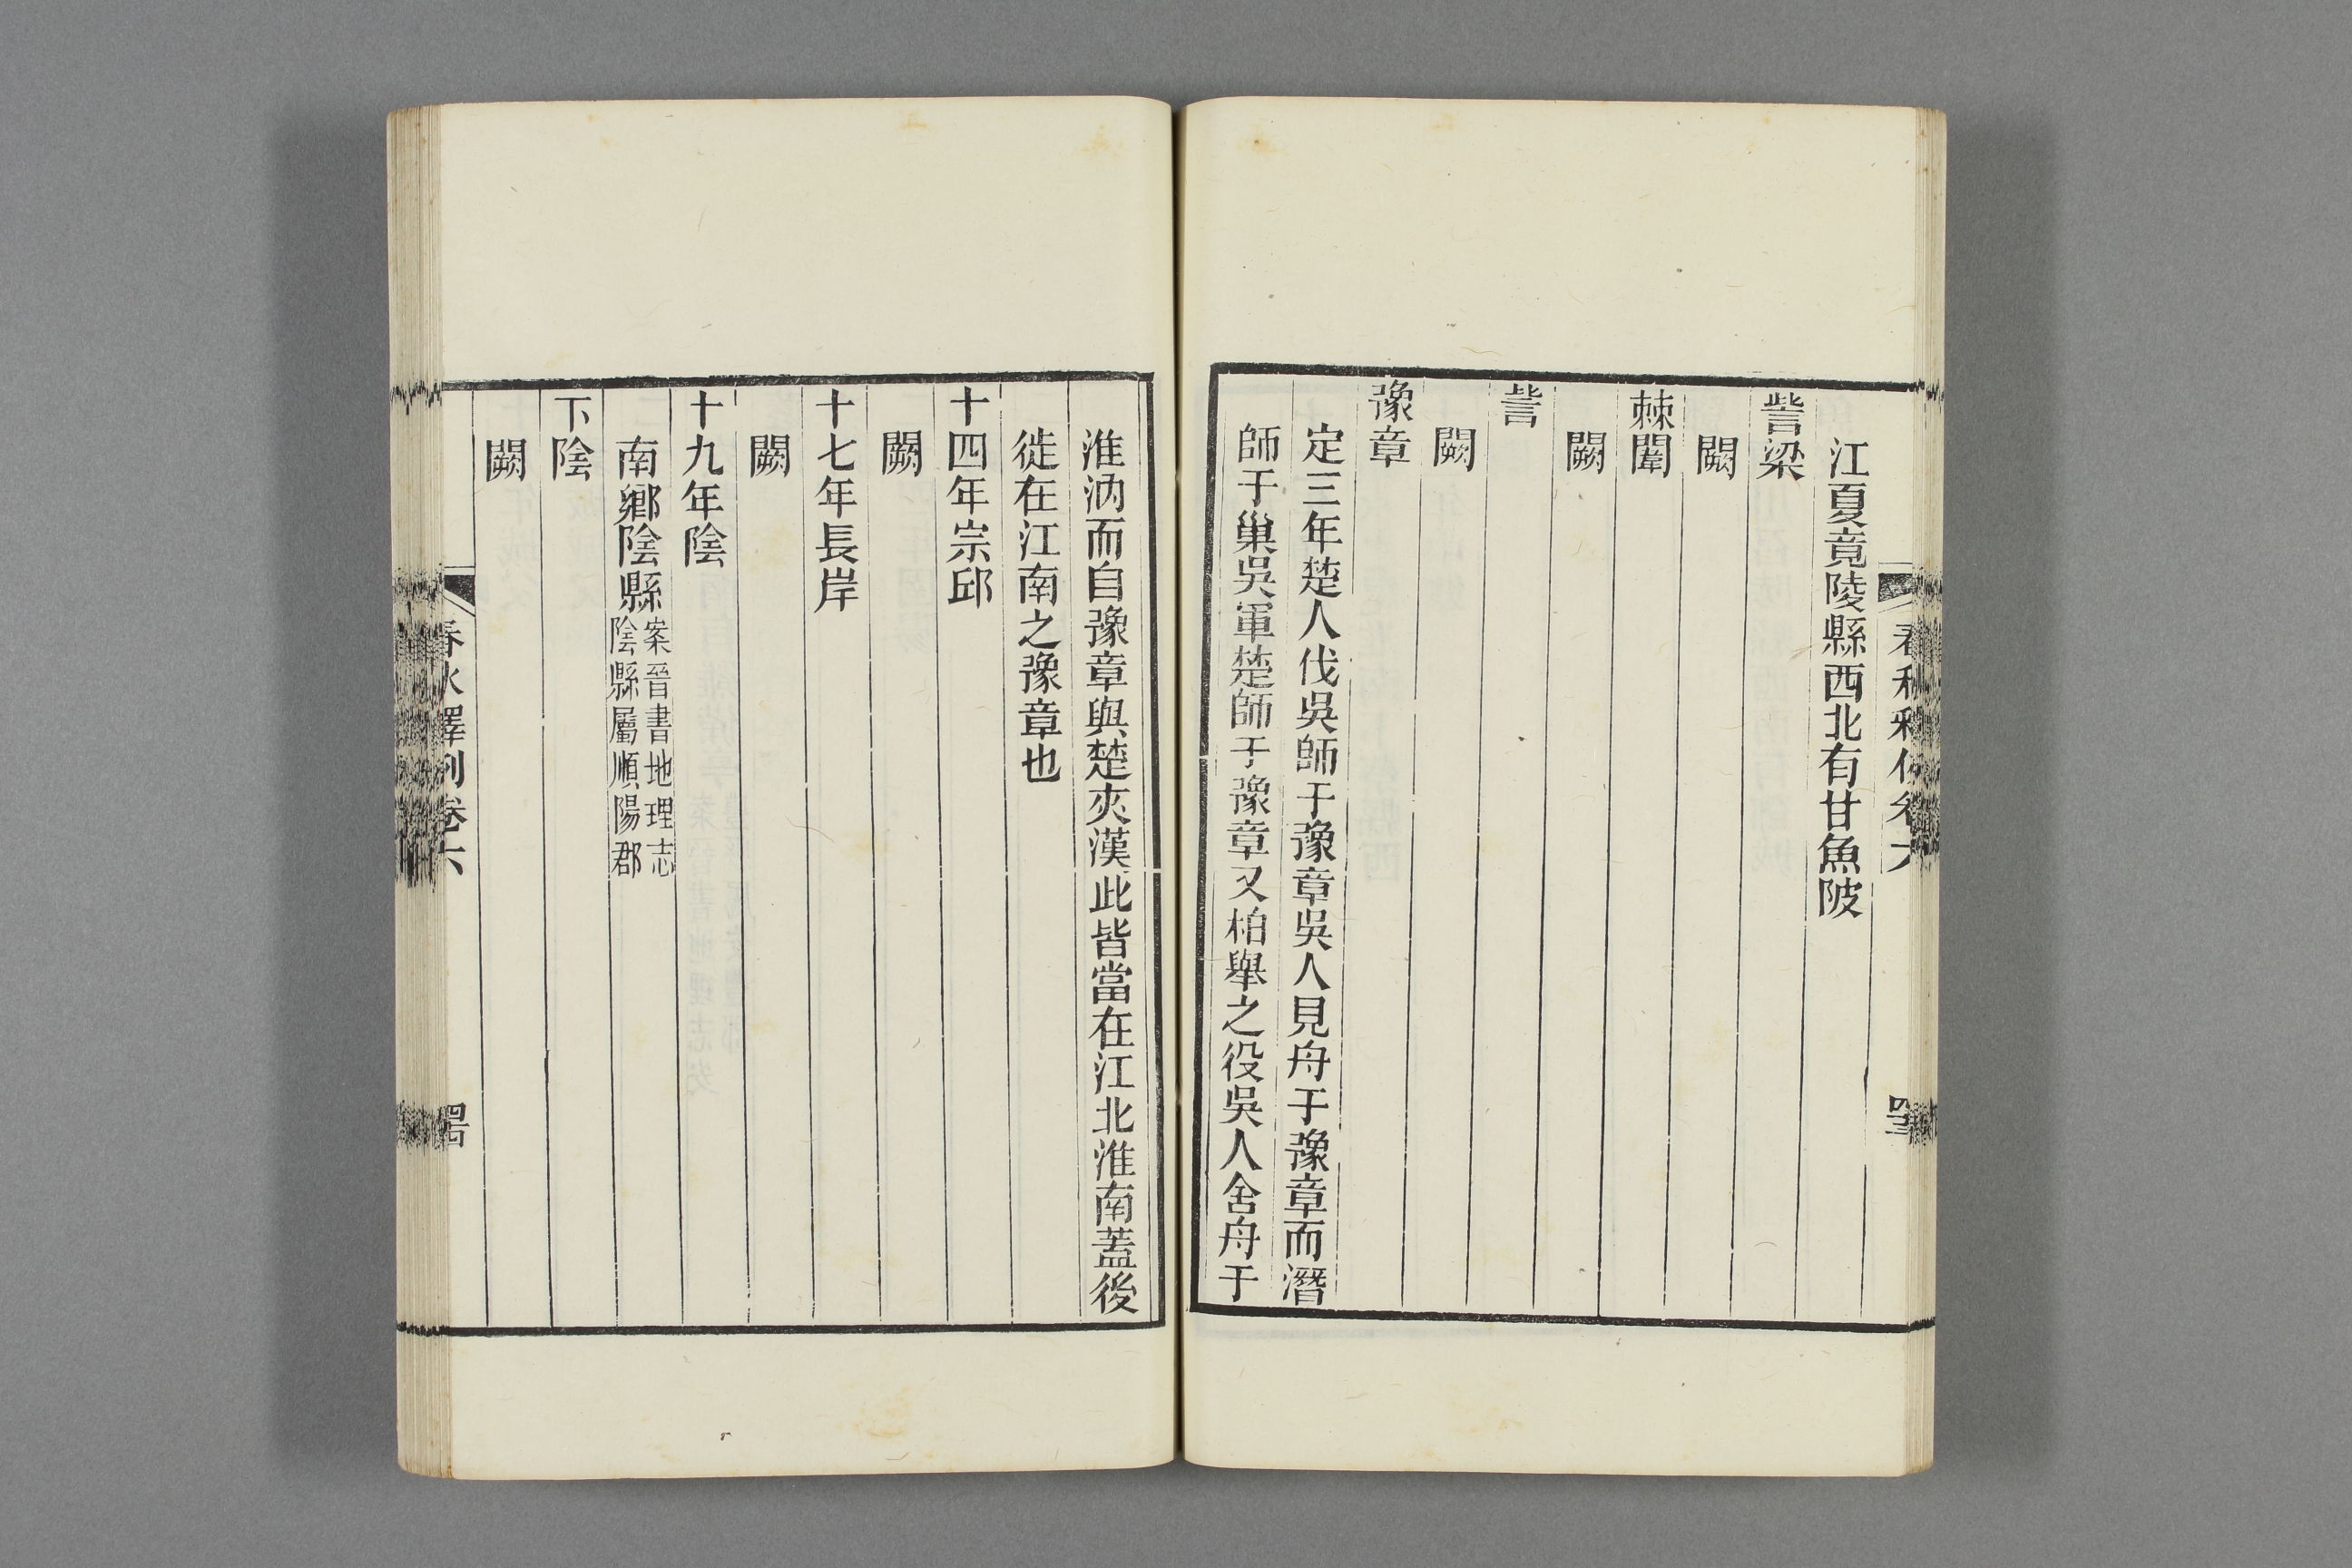 江夏竟陵縣西北有甘魚陂
訾梁
闕
棘闈
闕
訾
闕
豫章
定三年楚人伐吳師于豫章吳人見舟于豫章而潛
師于巢吳軍楚師于豫章又柏舉之役吳人舍舟于
淮汭而自豫章與楚夾漢此皆當在江北淮南蓋後
徙在江南之豫章也
十四年宗邱
闕
十七年長岸
闕
十九年陰
南鄉陰縣案晉書地理志
陰縣屬順陽郡
下陰
闕
春秋釋例卷六